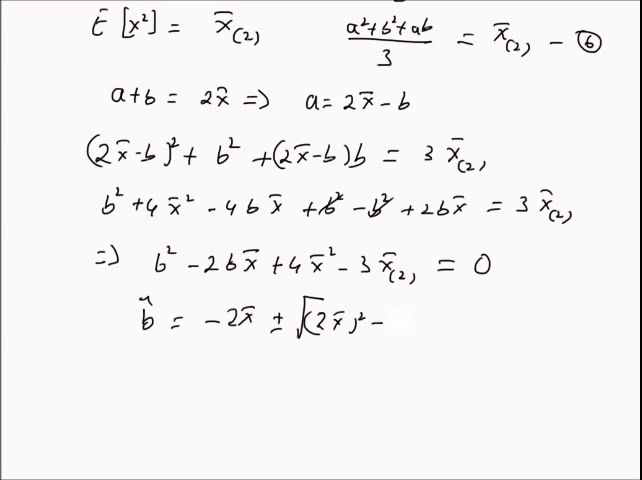 E [x²] = x̄₍₂₎ (a²+b²+ab)/3 = x̄₍₂₎ – ⑥
a+b = 2x̄ => a = 2x̄ – b
(2x̄–b)² + b² + (2x̄–b)b = 3 x̄₍₂₎
b² + 4x̄² – 4bx̄ + b² – b² + 2bx̄ = 3 x̄₍₂₎
=> b² – 2bx̄ + 4x̄² – 3x̄₍₂₎ = 0
b̂ = – 2x̄ ± √(2x̄)² –